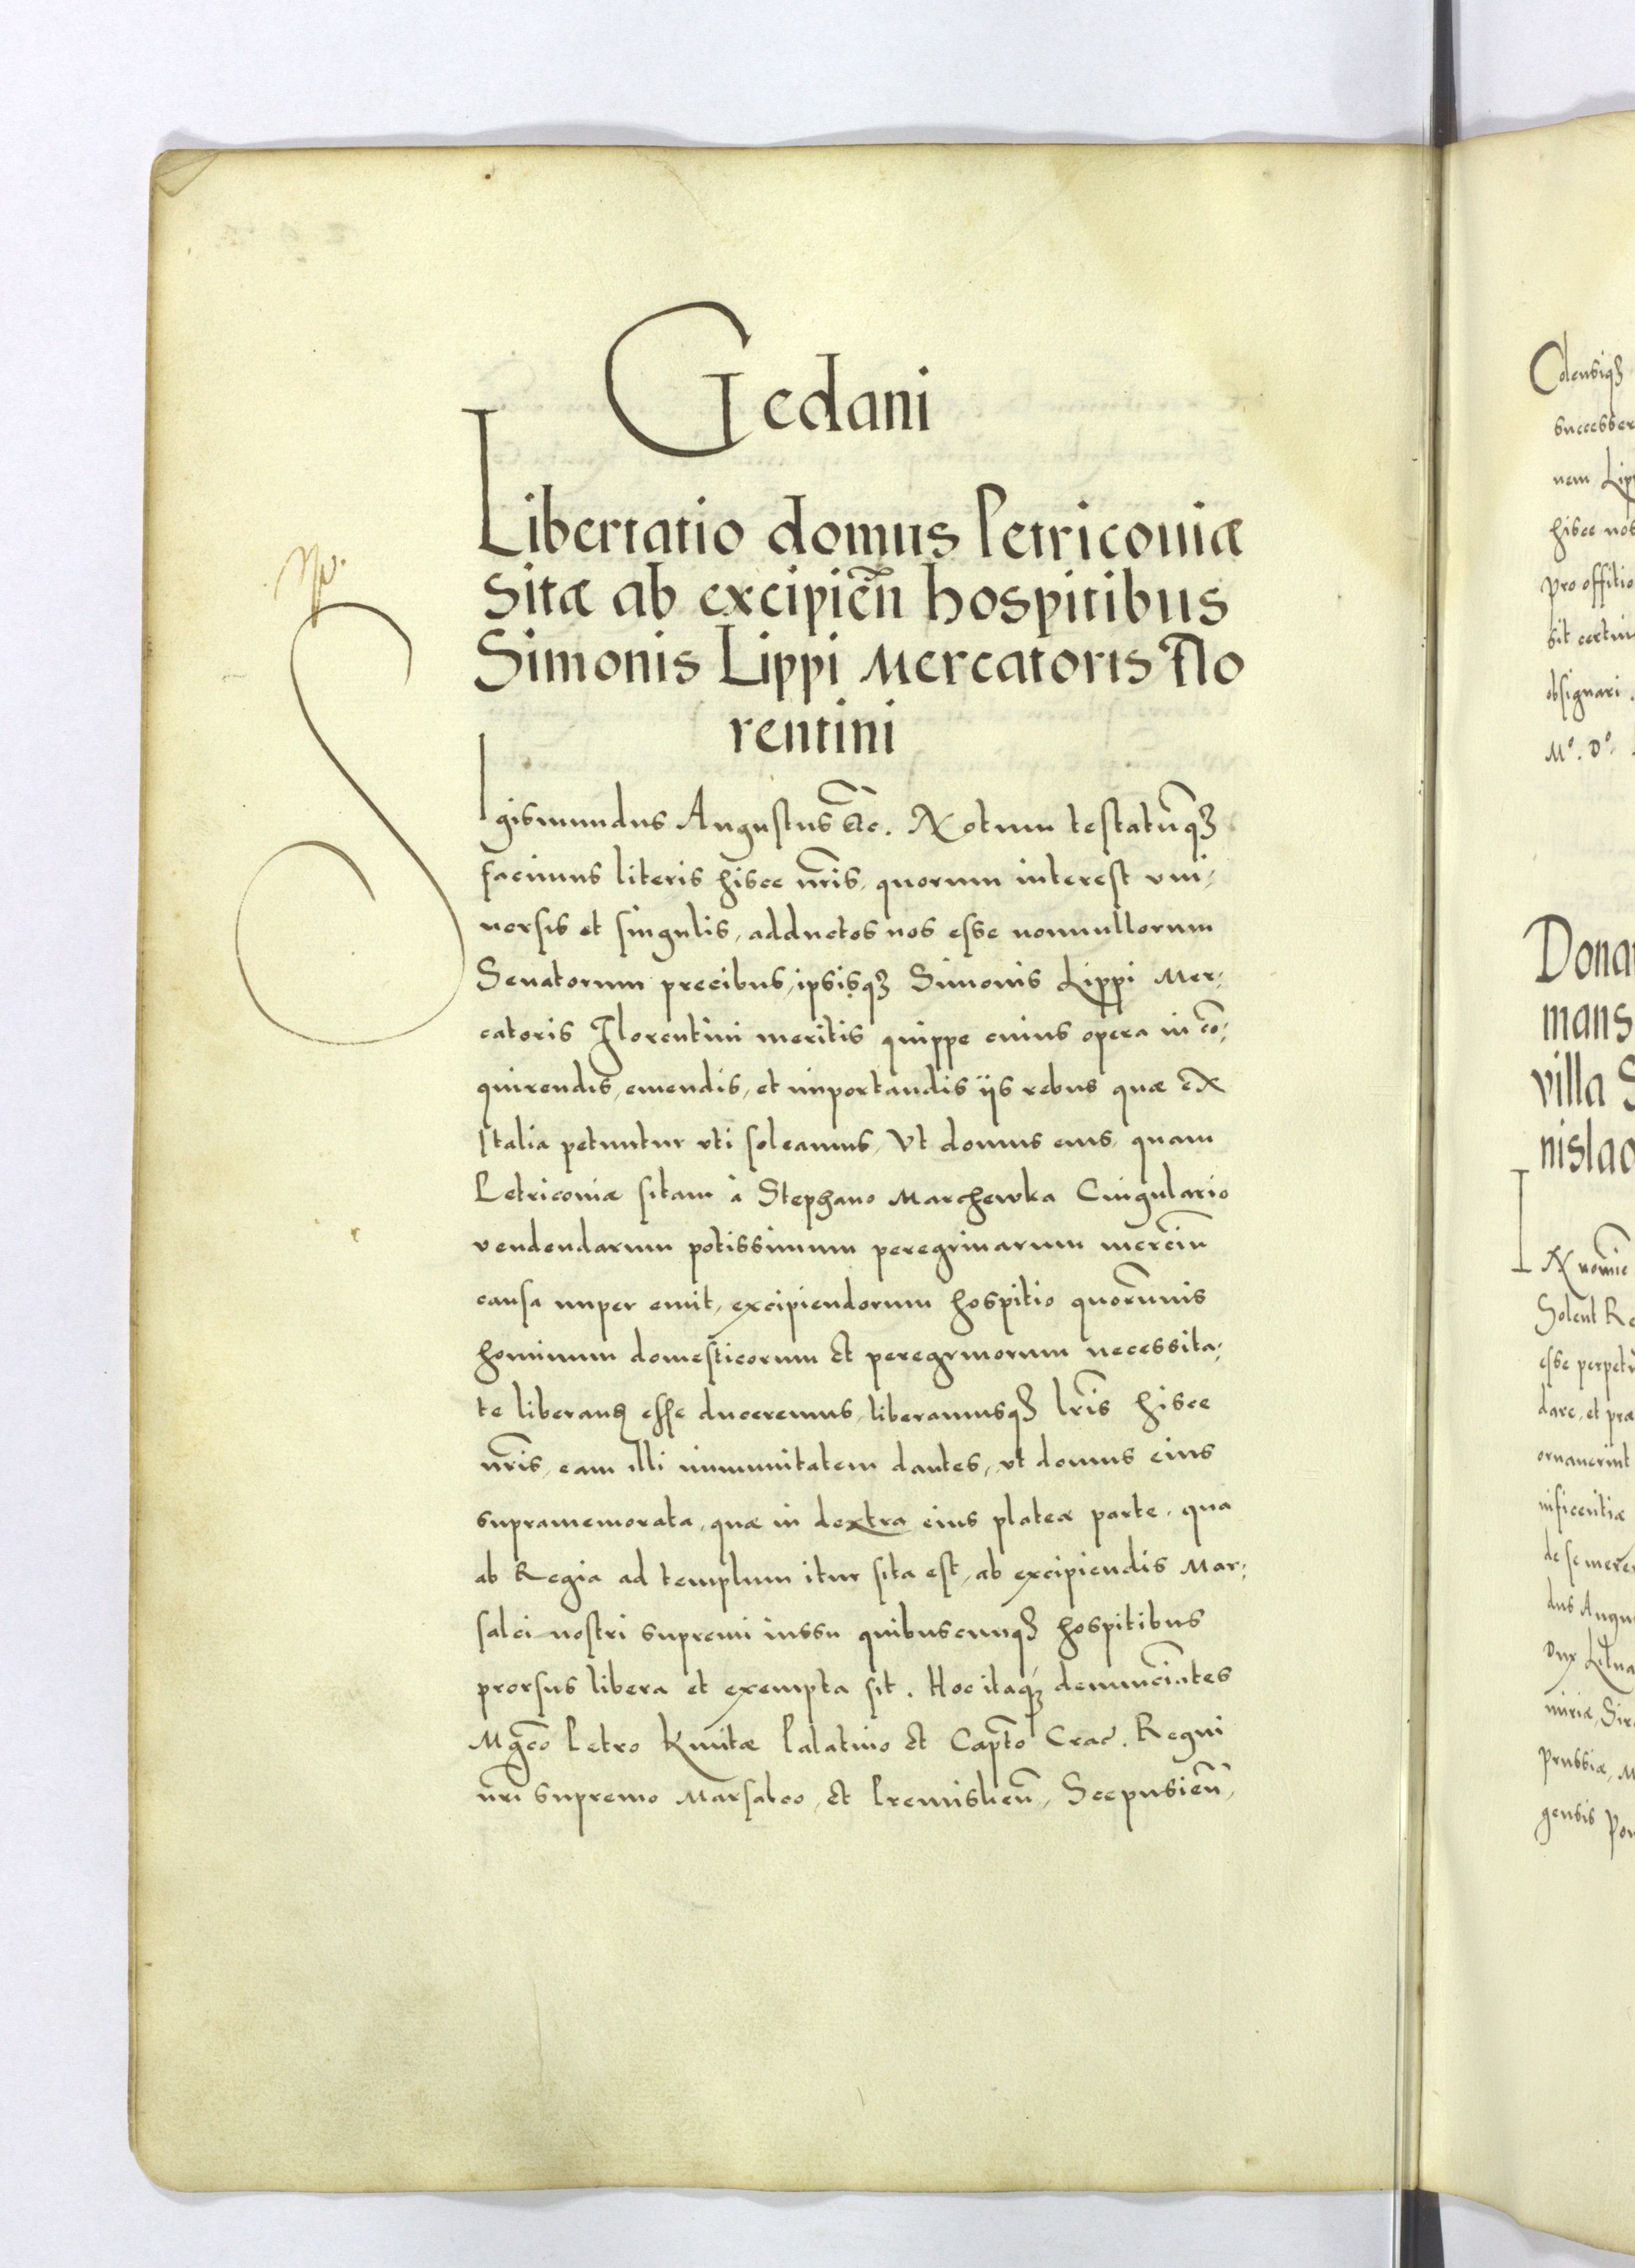 Gedani
Libertatio domus Petricouiæ
Sitæ ab excipien̄ hospitibus
Simonis Lippi Mercatoris Flo
rentini
SIgismundus Augustus &c. Notum testatūqꝫ
facimus literis hisce nr̄is, quorum interest vni,
uersis et singulis, adductos nos esse nonnullorum
Senatorum precibus, ipsisqꝫ Simonis Lippi Mer,
catoris Florentini meritis quippe cuius opera in co̅,
quirendis, emendis, et importandis ijs rebus quæ ex
Italia petuntur vti soleamus, Vt domus eius, quam
Petricouiæ sitam à Stephano Marchewka Cingulario
vendendarum potissimum peregrinarum merciū
causa nuper emit, excipiendorum hospitio quorūuis
hominum domesticorum et peregrinorum necessita,
te liberanꝫ esse duceremus, liberamusqꝫ lr̄is hisce
nr̄is, eam illi immunitatem dantes, vt domus eius
supramemorata, quæ in dextra eius plateæ parte, qua
ab Regia ad templum itur sita est, ab excipiendis Mar,
salci nostri supremi iussu quibuscunqꝫ hospitibus
prorsus libera et exempta sit. Hoc itaqꝫ denunciātes
Mgc̄o Petro Kmitæ Palatino et Capt̄o Crac̄. Regni
nr̄i supremo Marsalco, et Premislien̄, Scepusien̄,
Colensiqꝫ
successer
nem Lipp
hisce nos
pro offitio
sit certiu
obsignari.
Mº. Dº.
Dona
mans
villa S
nislao
IN nomīe
Solent Re
esse perpetu
dare, et præ
ornauerint
nificentiæ
de se mere
dus Augu
Dux Litua
miriæ, Sir
Prussiæ, M
gensis Pom